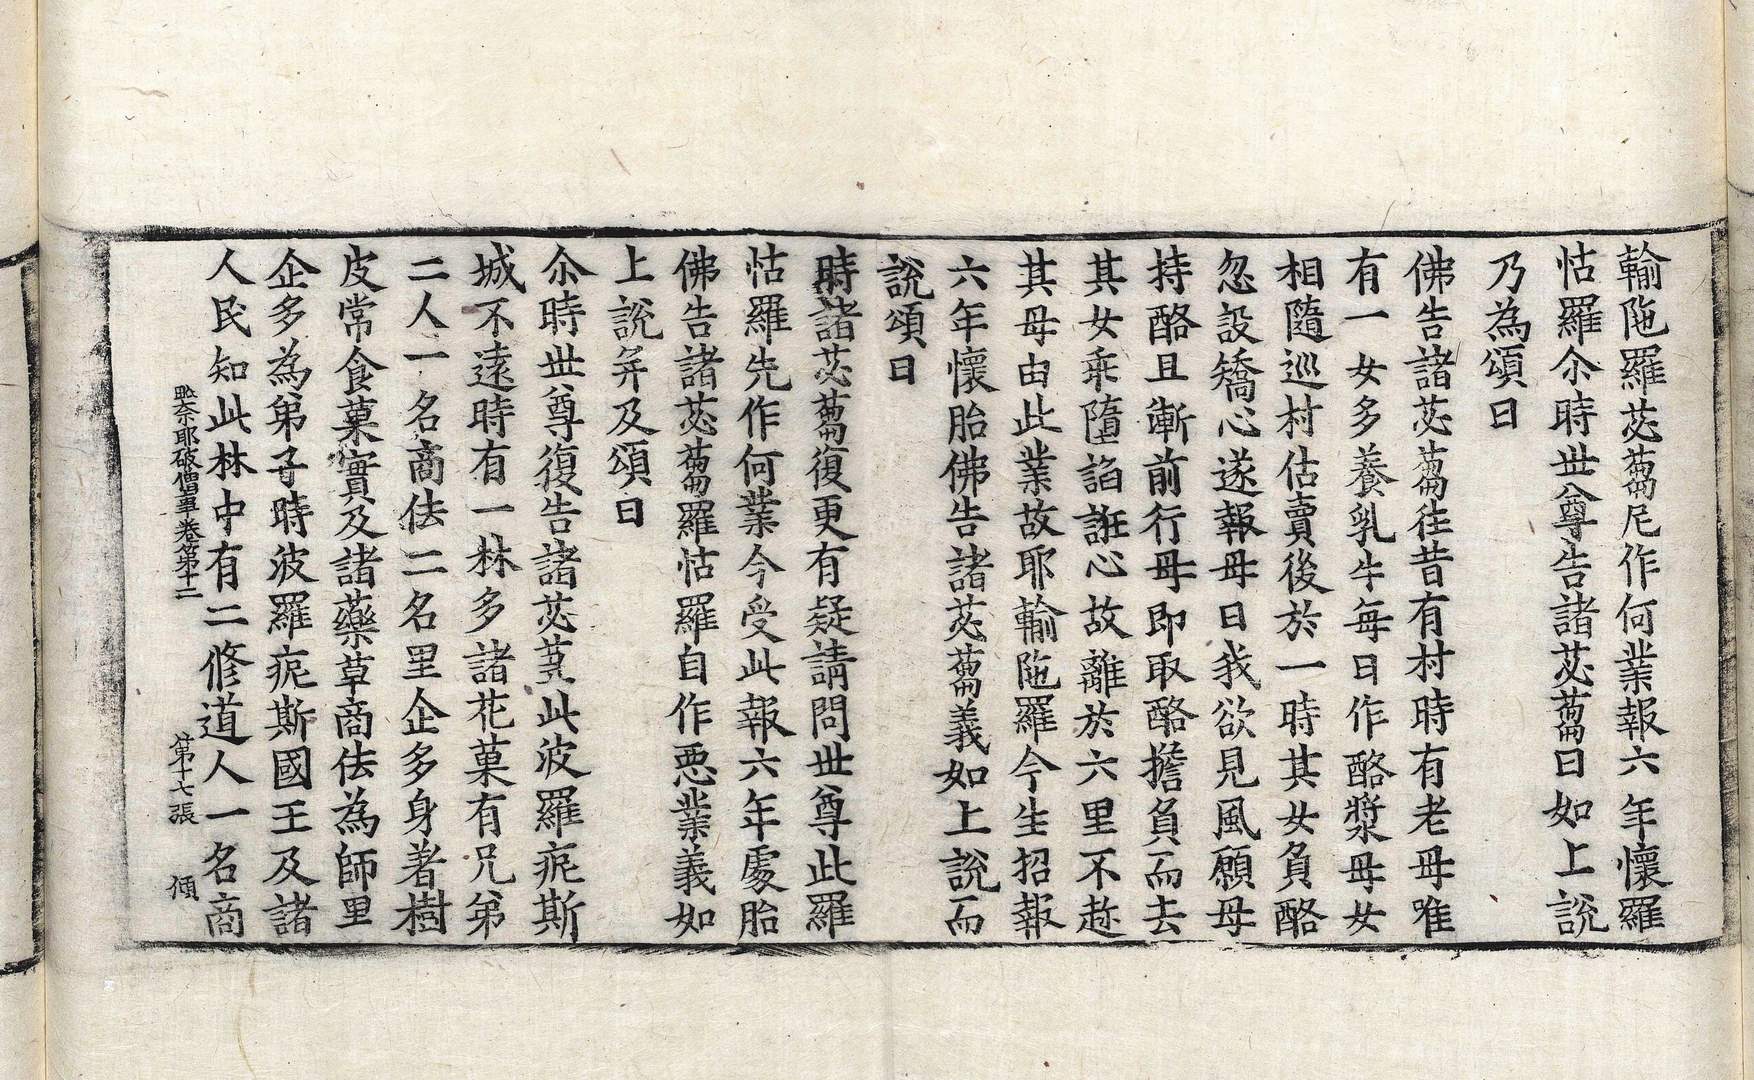 輸陁羅苾蒭尼作何業報六年懷羅
怙羅尒時世尊告諸苾蒭曰如上說
乃為頌曰
佛告諸苾蒭徃昔有村時有老母唯
有一女多養乳牛每日作酪漿母女
相隨巡村估賣後於一時其女負酪
忽設矯心遂報母曰我欲見風願母
持酪且漸前行母即取酪擔負而去
其女乘墮諂誑心故離於六里不趂
其母由此業故耶輸陁羅今生招報
六年懷胎佛告諸苾蒭義如上說而
說頌曰
時諸苾蒭復更有疑請問世尊此羅
怙羅先作何業今受此報六年處胎
佛告諸苾蒭羅怙羅自作惡業義如
上說并及頌曰
尒時世尊復告諸苾蒭此波羅痆斯
城不遠時有一林多諸花菓有兄弟
二人一名商佉二名里企多身著樹
皮常食菓實及諸藥草商佉為師里
企多為弟子時波羅痆斯國王及諸
人民知此林中有二修道人一名商
毗奈耶破僧事卷第十二 第十七張 傾